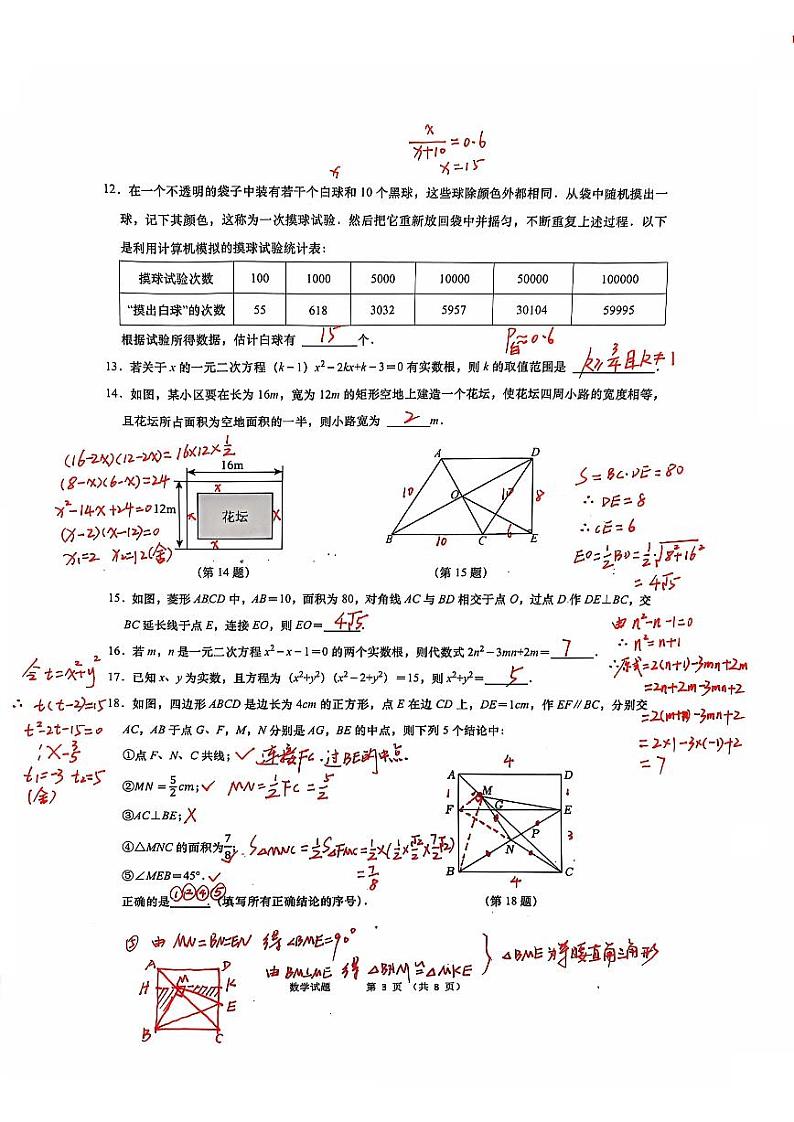 x/(x+10)=0.6
x=15
12．在一个不透明的袋子中装有若干个白球和 10 个黑球，这些球除颜色外都相同．从袋中随机摸出一
球，记下其颜色，这称为一次摸球试验．然后把它重新放回袋中并摇匀，不断重复上述过程．以下
是利用计算机模拟的摸球试验统计表：
摸球试验次数 100 1000 5000 10000 50000 100000
“摸出白球”的次数 55 618 3032 5957 30104 59995
根据试验所得数据，估计白球有 15 个． P白≈0.6
13．若关于 x 的一元二次方程（k－1）x²－2kx+k－3＝0 有实数根，则 k 的取值范围是 k≥3/4且k≠1．
14．如图，某小区要在长为 16m，宽为 12m 的矩形空地上建造一个花坛，使花坛四周小路的宽度相等，
且花坛所占面积为空地面积的一半，则小路宽为 2 m．
(16-2x)(12-2x)=16×12×1/2
(8-x)(6-x)=24
x²-14x+24=0
(x-2)(x-12)=0
x₁=2 x₂=12(舍)
16m
12m
花坛
x
x
x
x
（第 14 题）
A D
10 O 10 8
B 10 C 6 E
（第 15 题）
S=BC·DE=80
∴DE=8
∴CE=6
EO=1/2BD=1/2·√(8²+16²)
=4√5
15．如图，菱形 ABCD 中，AB＝10，面积为 80，对角线 AC 与 BD 相交于点 O，过点 D 作 DE⊥BC，交
BC 延长线于点 E，连接 EO，则 EO＝ 4√5．
16．若 m，n 是一元二次方程 x²－x－1＝0 的两个实数根，则代数式 2n²－3mn+2m＝ 7 ．
由n²-n-1=0
∴n²=n+1
∴原式=2(n+1)-3mn+2m
=2n+2m-3mn+2
=2(m+n)-3mn+2
=2×1-3×(-1)+2
=7
17．已知 x、y 为实数，且方程为（x²+y²）（x²－2+y²）＝15，则 x²+y²＝ 5 ．
令t=x²+y²
∴t(t-2)=15
t²-2t-15=0
1 3
1 -5
t₁=-3 t₂=5
(舍)
18．如图，四边形 ABCD 是边长为 4cm 的正方形，点 E 在边 CD 上，DE＝1cm，作 EF∥BC，分别交
AC，AB 于点 G、F，M，N 分别是 AG，BE 的中点，则下列 5 个结论中：
①点 F、N、C 共线； ✓ 连接FC．过BE的中点．
②MN＝5/2cm； ✓ MN=1/2FC=5/2
③AC⊥BE； X
④△MNC 的面积为7/8； S△MNC=1/2S△FMC=1/2×(1/2×√2/2×7/2√2)
=7/8
⑤∠MEB＝45°． ✓
正确的是 ①②④⑤ （填写所有正确结论的序号）．
4
A D
1 M 1
F G E
P 3
N
B 4 C
（第 18 题）
⑤ 由 MN=BN=EN 得 ∠BME=90°
由BM⊥ME 得 △BHM≌△MKE
△BME为等腰直角三角形
A D
H M K
E
B C
数学试题 第 3 页（共 8 页）